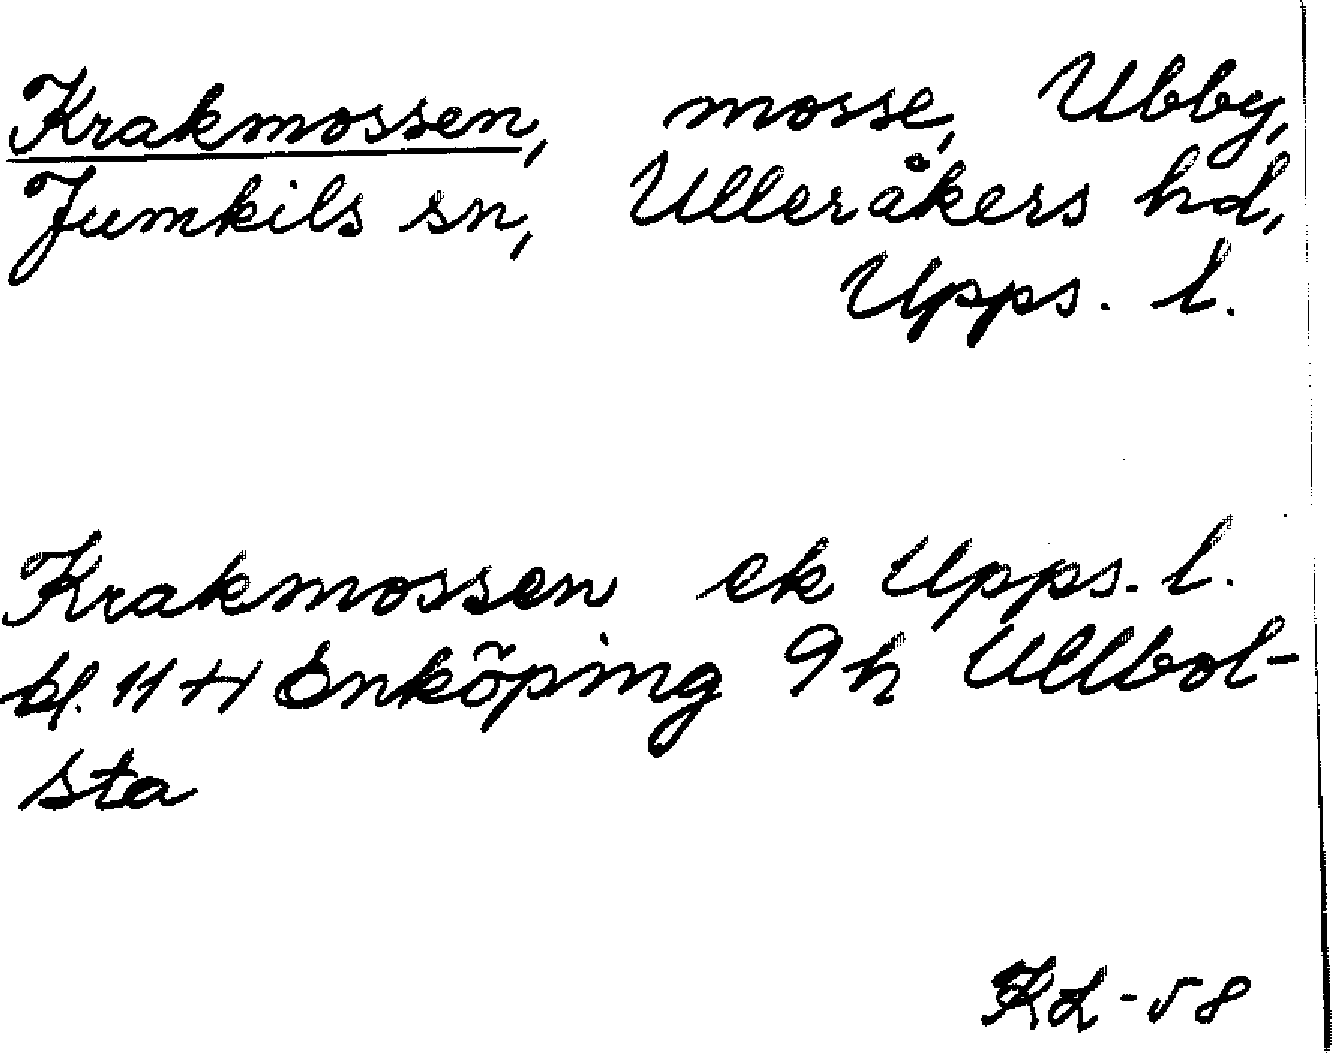 Krakmossen, mosse, Ubby,
Jumkils sn, Ulleråkers hd,
Upps. l.
Krakmossen ek Upps. l.
bl. 11 + Enköping 9h Ullbol-
sta
KL-58